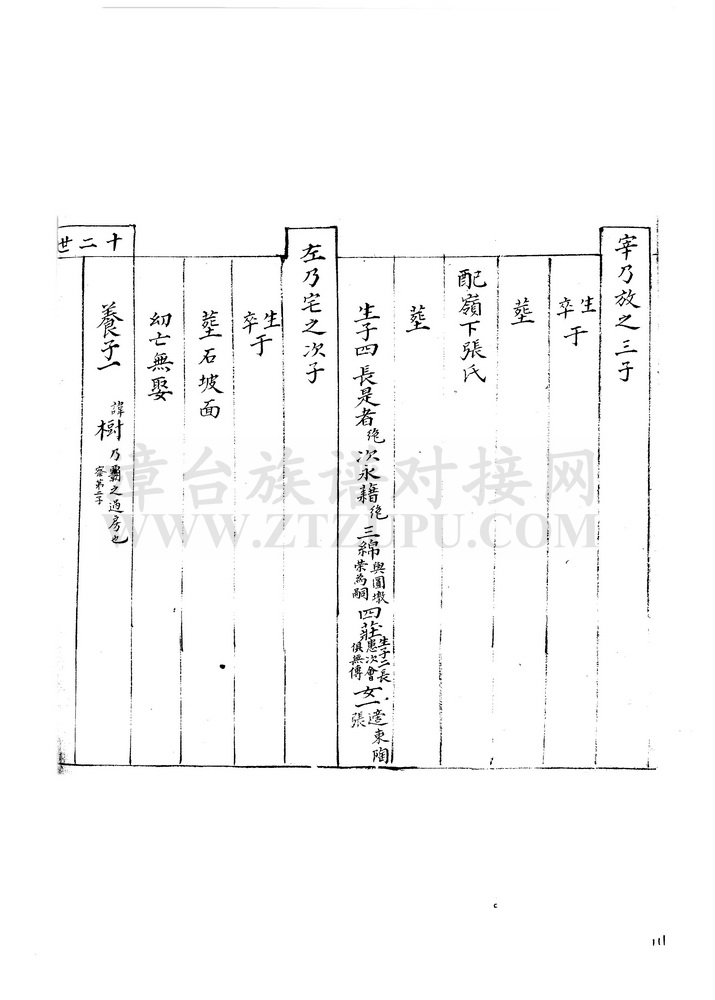 宰乃放之三子
生于
卒
塟
配嶺下張氏
塟
生子四長是者絶次永籍絶三綿與圓墩榮為嗣四莊生子二長恵次會俱無傳女一適東陶張
左乃宅之次子
生于
卒
塟石坡面
幼亡無娶
十二世
養子一諱樹乃霸之過房也容第二子
章台族谱对接网
WWW.ZTZUPU.COM
111